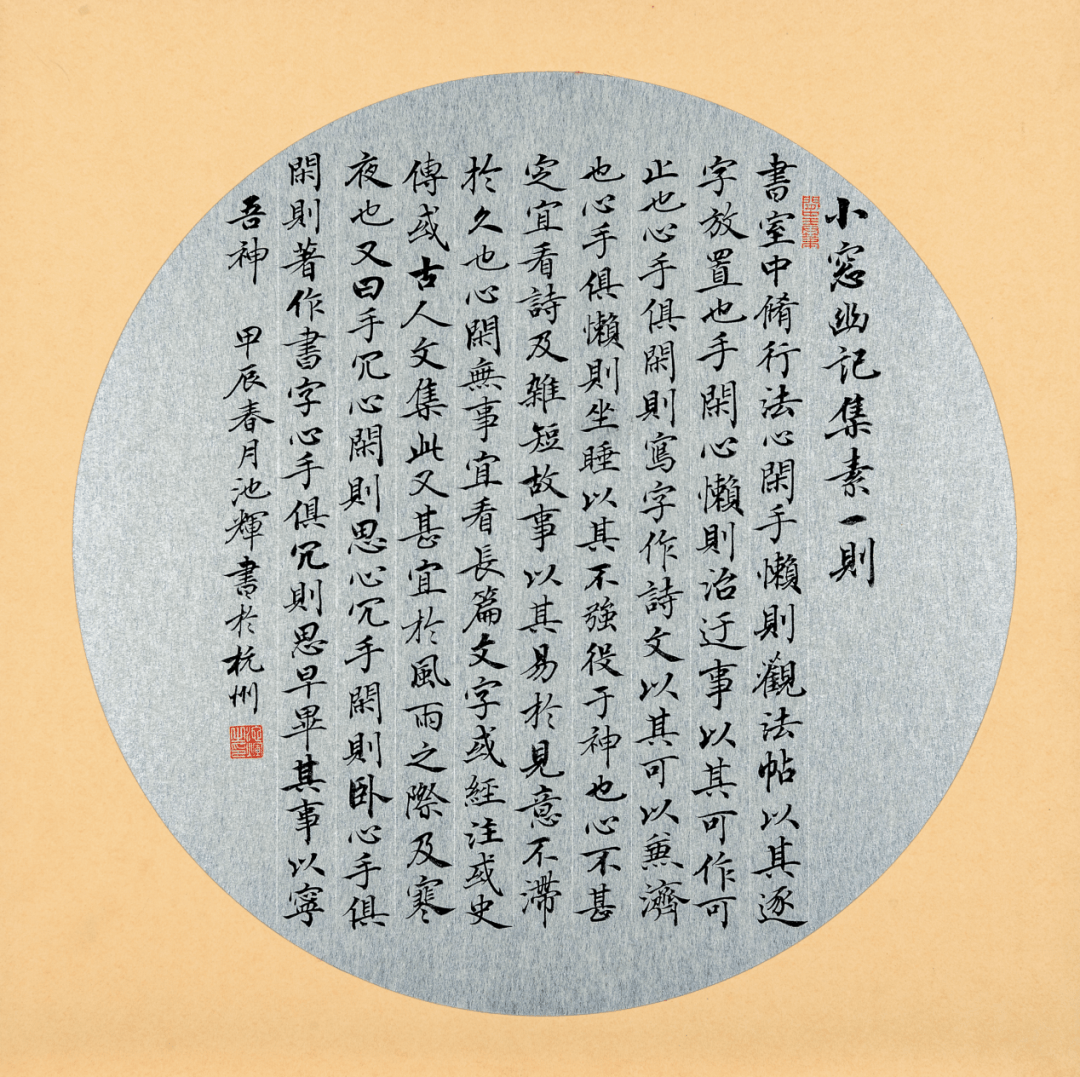 小窓幽記集素一則
書室中脩行法心閑手懶則觀法帖以其逐
字放置也手閑心懶則治迂事以其可作可
止也心手俱閑則寫字作詩文以其可以兼濟
也心手俱懶則坐睡以其不強役于神也心不甚
定宜看詩及雜短故事以其易於見意不滯
於久也心閑無事宜看長篇文字或經注或史
傳或古人文集此又甚宜於風雨之際及寒
夜也又曰手冗心閑則思心冗手閑則臥心手俱
閑則著作書字心手俱冗則思早畢其事以寧
吾神
甲辰春月池輝書於杭州